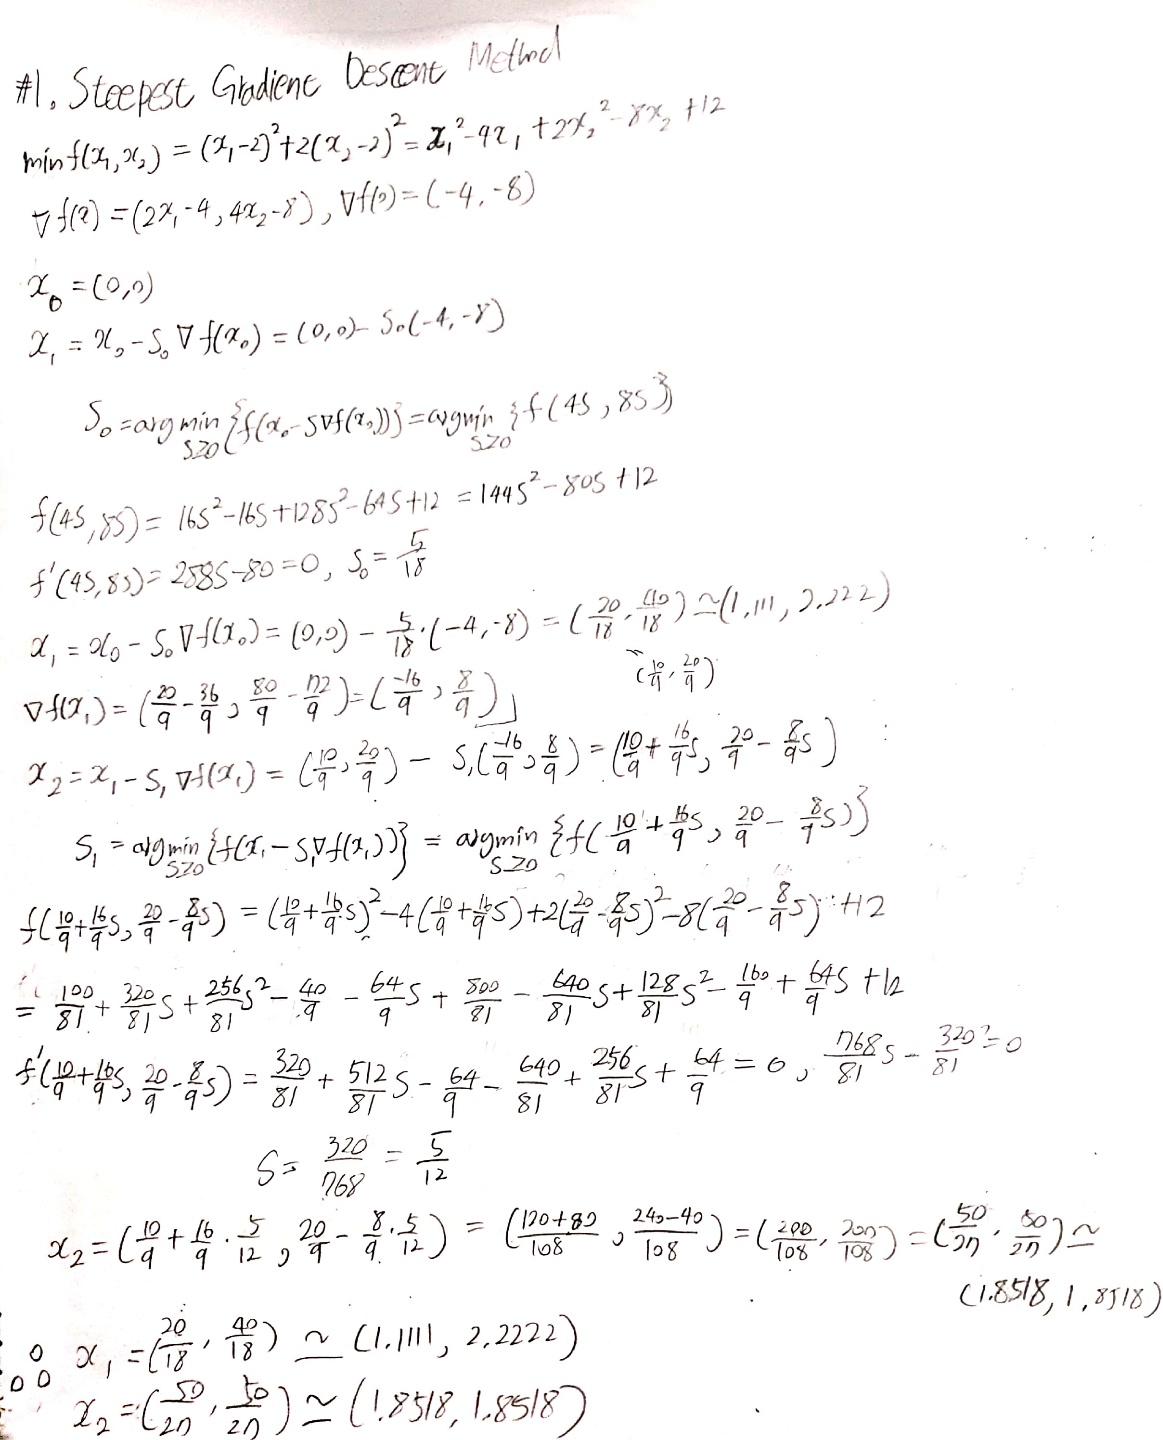 #1. Steepest Gradient Descent Method
min f(x₁,x₂) = (x₁-2)²+2(x₂-2)² = x₁²-4x₁+2x₂²-8x₂+12
∇f(x) = (2x₁-4, 4x₂-8), ∇f(0) = (-4,-8)
x₀ = (0,0)
x₁ = x₀-S₀∇f(x₀) = (0,0)-S₀(-4,-8)
S₀ = argmin_{S≥0} {f(x₀-S∇f(x₀))} = argmin_{S≥0} {f(4S,8S)}
f(4S,8S) = 16S²-16S+128S²-64S+12 = 144S²-80S+12
f'(4S,8S) = 288S-80=0, S₀ = 5/18
x₁ = x₀-S₀∇f(x₀) = (0,0) - 5/18·(-4,-8) = (20/18, 40/18) ≃ (1.111, 2.222)
(10/9, 20/9)
∇f(x₁) = (20/9 - 36/9, 80/9 - 72/9) = (-16/9, 8/9)
x₂ = x₁-S₁∇f(x₁) = (10/9, 20/9) - S₁(-16/9, 8/9) = (10/9 + 16/9 S, 20/9 - 8/9 S)
S₁ = argmin_{S≥0} {f(x₁-S₁∇f(x₁))} = argmin_{S≥0} {f(10/9 + 16/9 S, 20/9 - 8/9 S)}
f(10/9 + 16/9 S, 20/9 - 8/9 S) = (10/9 + 16/9 S)² - 4(10/9 + 16/9 S) + 2(20/9 - 8/9 S)² - 8(20/9 - 8/9 S) + 12
= 100/81 + 320/81 S + 256/81 S² - 40/9 - 64/9 S + 800/81 - 640/81 S + 128/81 S² - 160/9 + 64/9 S + 12
f'(10/9 + 16/9 S, 20/9 - 8/9 S) = 320/81 + 512/81 S - 64/9 - 640/81 + 256/81 S + 64/9 = 0, 768/81 S - 320/81 = 0
S = 320/768 = 5/12
x₂ = (10/9 + 16/9 · 5/12, 20/9 - 8/9 · 5/12) = (120+80/108, 240-40/108) = (200/108, 200/108) = (50/27, 50/27) ≃
(1.8518, 1.8518)
∴ x₁ = (20/18, 40/18) ≃ (1.1111, 2.2222)
x₂ = (50/27, 50/27) ≃ (1.8518, 1.8518)